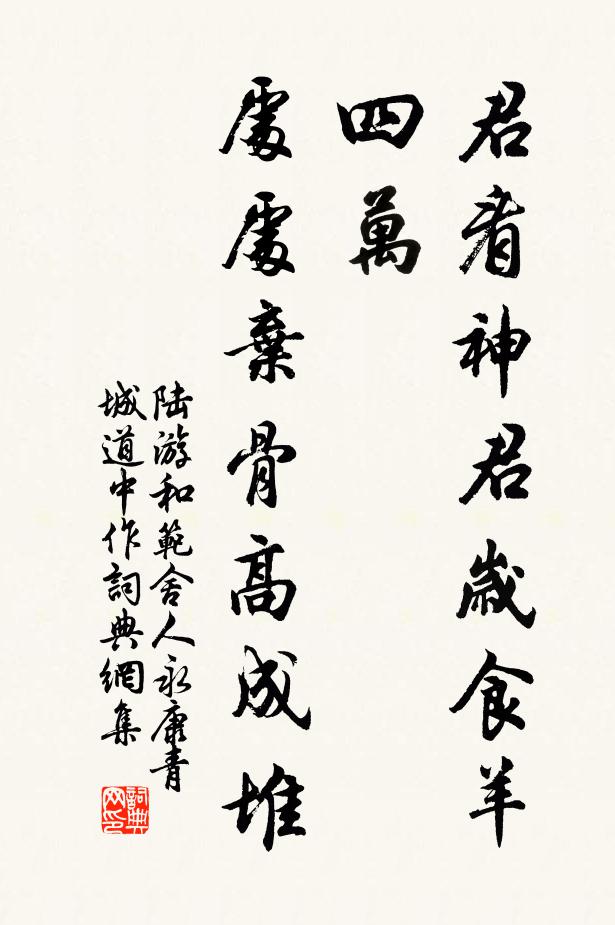 君看神君歲食羊
四萬
處處棄骨高成堆
陸游和範舍人永康青
城道中作詞典網集
詞典
网印